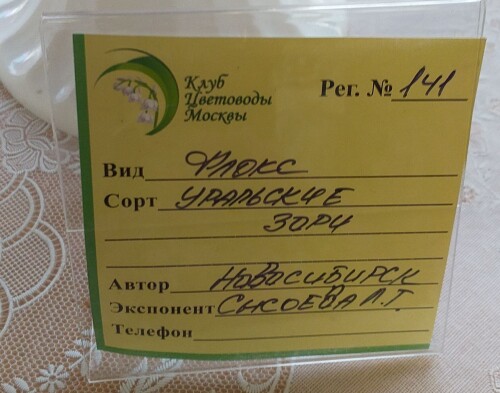 Клуб
Цветоводы
Москвы
Рег. № 141
Вид Флокс
Сорт УРАЛЬСКИЕ
ЗОРИ
Автор Новосибирск
Экспонент Сысоева Л.Т.
Телефон